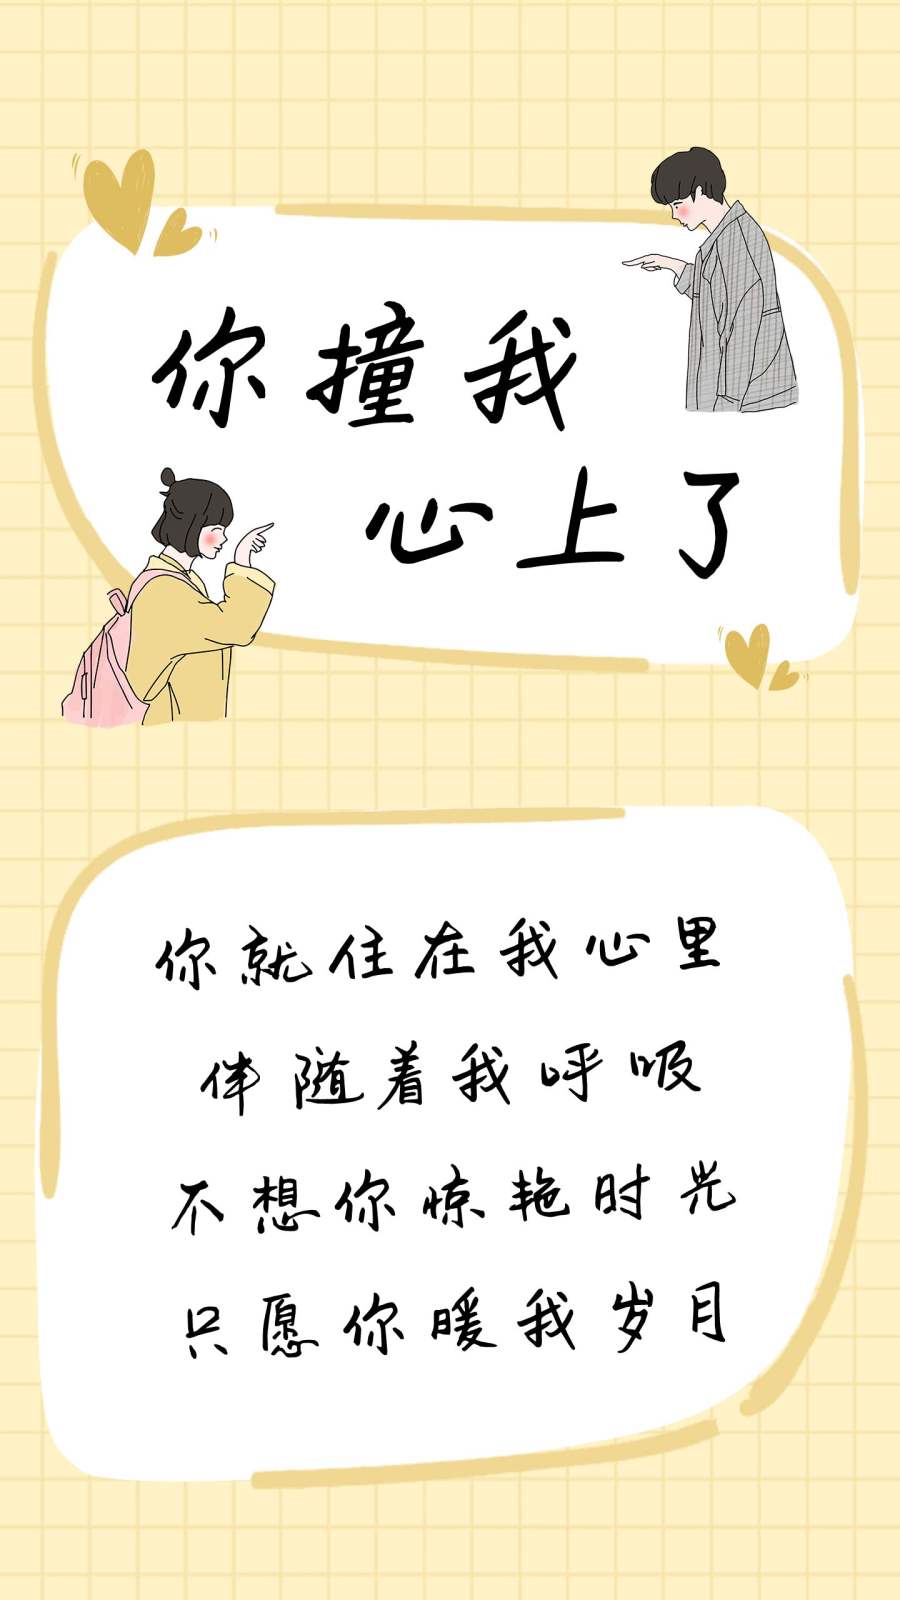 你撞我
心上了
你就住在我心里
伴随着我呼吸
不想你惊艳时光
只愿你暖我岁月